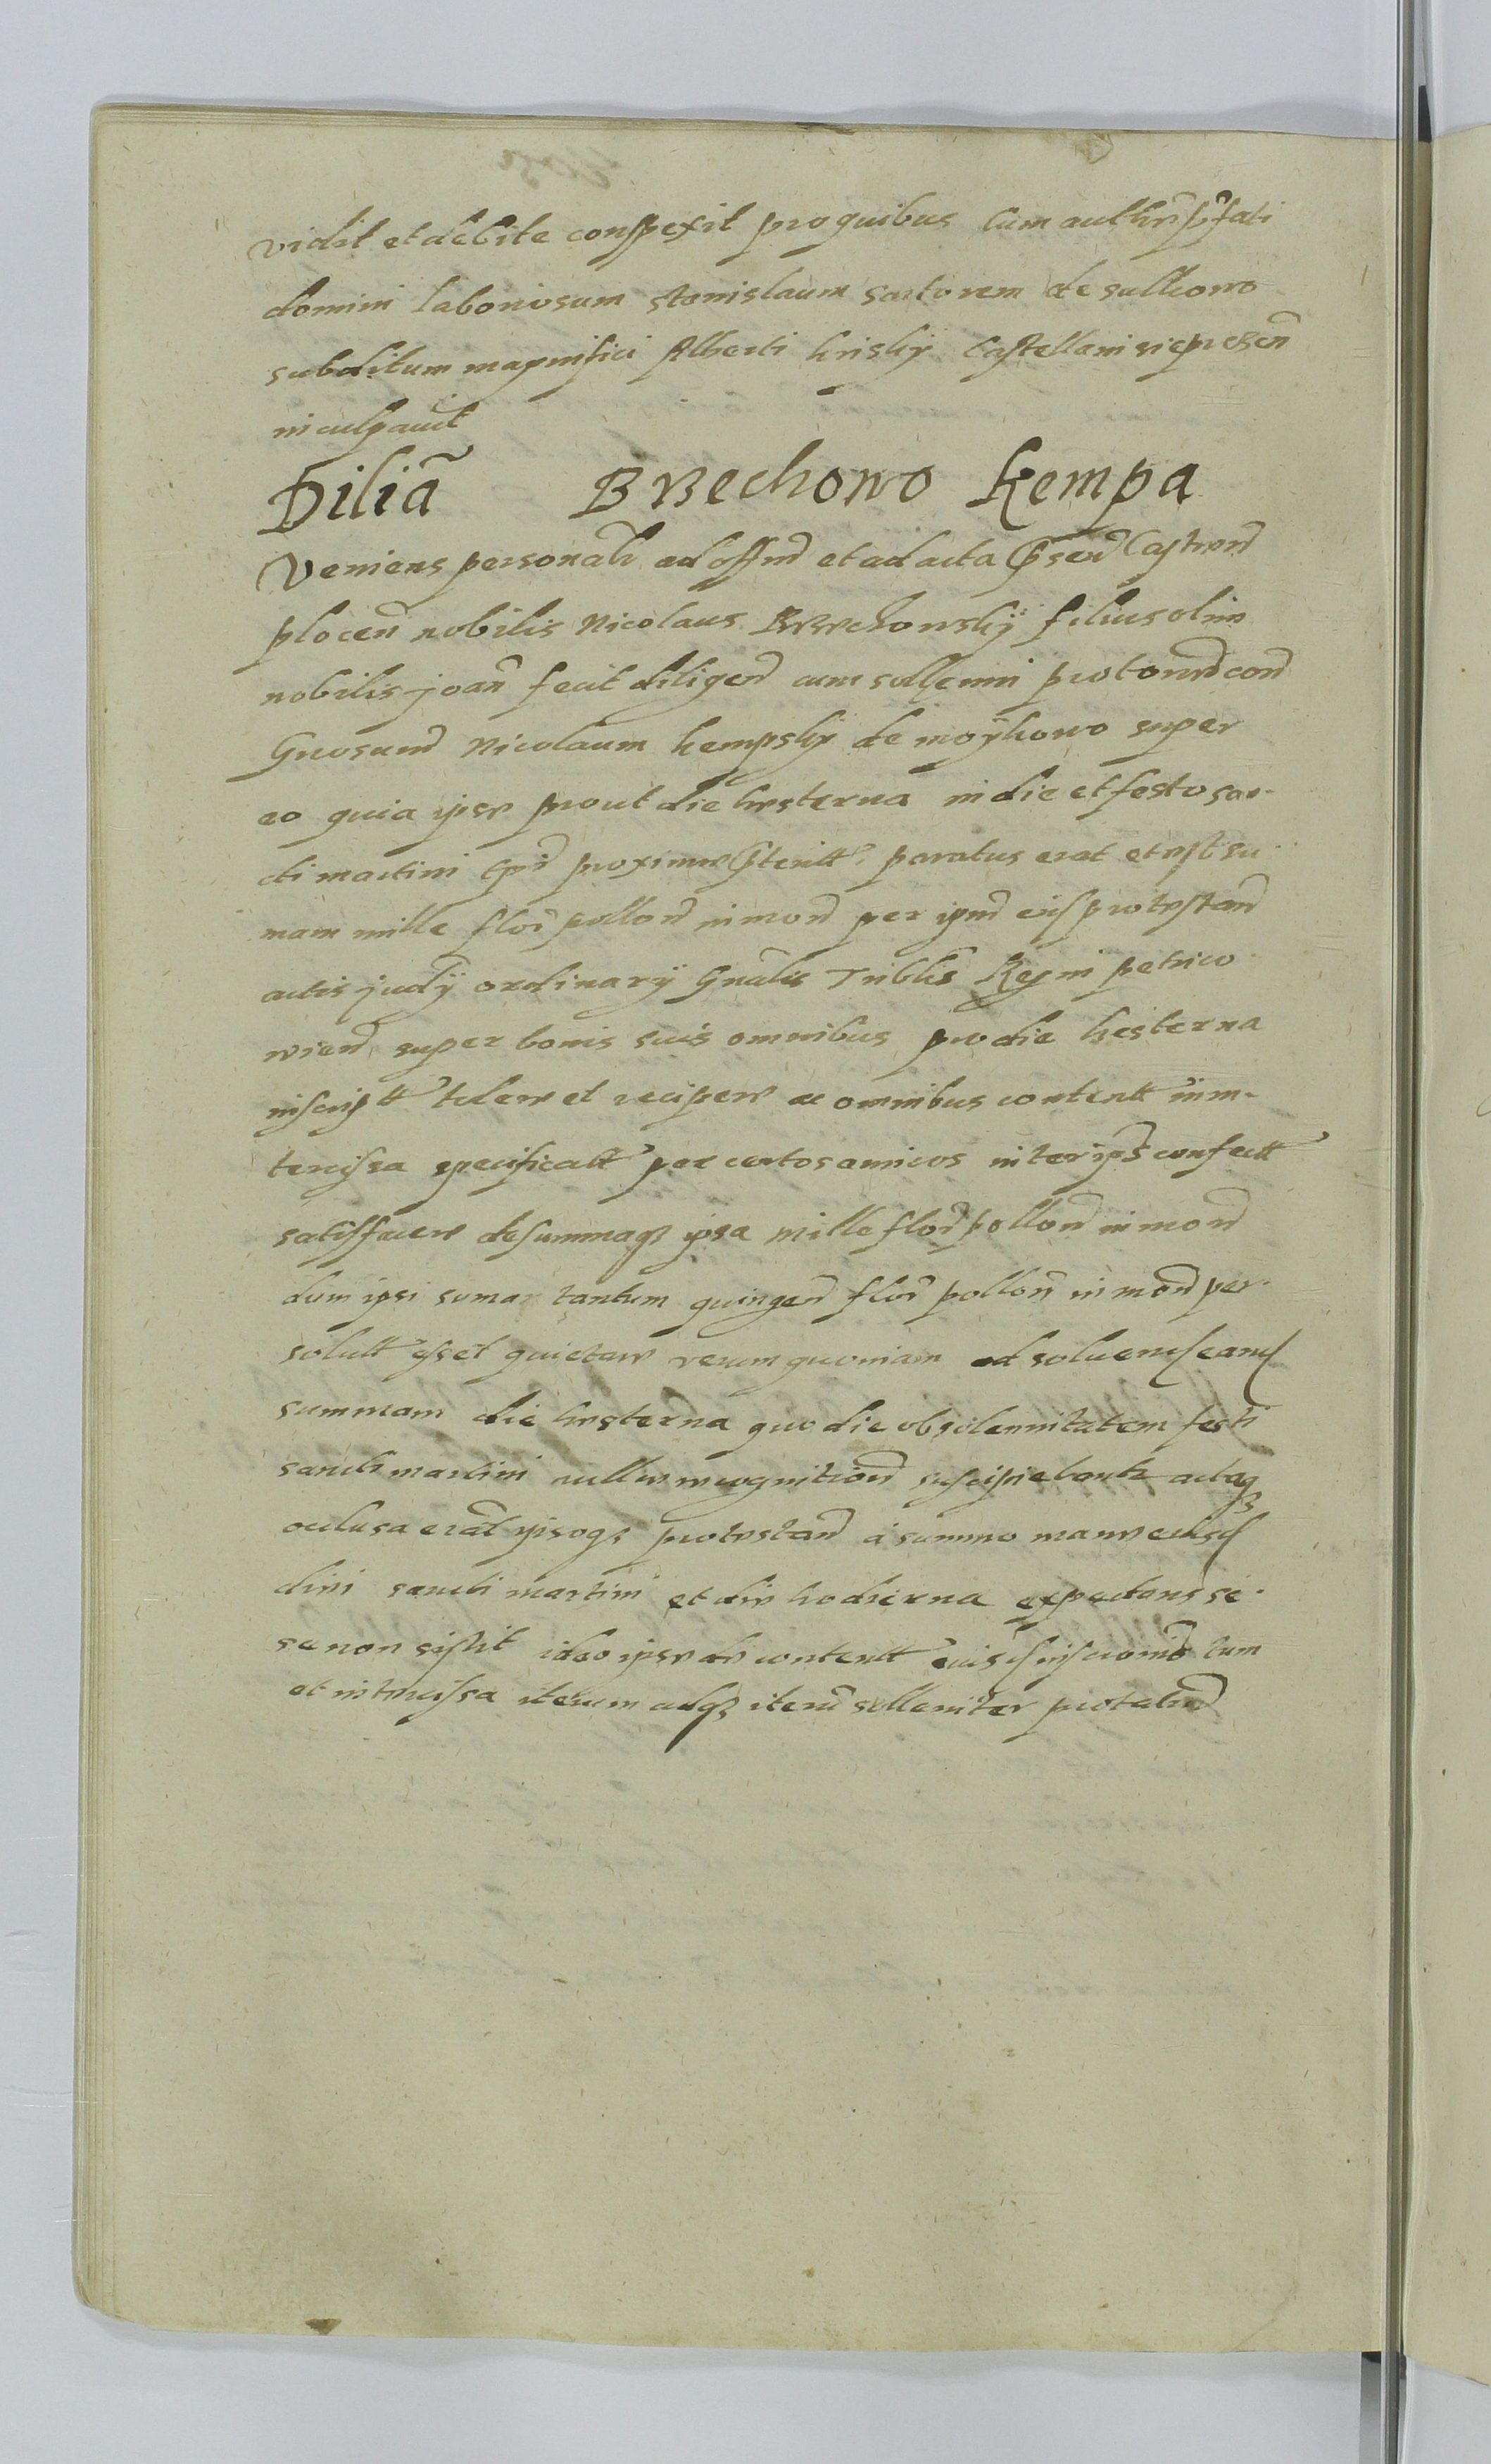 vidit et debite conspexit pro quibus tum authŕ p̄fati
domini laboriosum stanislaum sartorem de sulkowo
subditum magnifici Alberti krisky Castellani siepresen̄
inculpavit
Dilia᷈ Brzechowo Kempa
Veniens personalr̄ ad offm̄ et ad acta p̄sen̄ Castren̄
plocen̄ nobilis Nicolaus Brzechowskÿ filius olim
nobilis joan̄ fecit diligen̄ cum sollemni protōne con̄
Gnosum̄ Nicolaum kempskÿ de moÿkowo super
eo quia ipse prout die hesterna in die et festo san-
cti martini Ep̄i proxime p̄teritt paratus erat et est su-
mam mille flor̄ pollon̄ in mon̄ per ipm̄ eis protestan̄
actis judÿ ordinarÿ Gnalis Triblis Regni petrico-
wien̄ super bonis suis omnibus pro die hesterna
inscriptt tolere et recipere ac omnibus contentt in in-
tercisa specificatt per certos amicos inter ips̄ confectt
satisfacere de summaqȝ ipsa mille flor̄ pollon̄ in mon̄
dum ipsi suma tantum quingen̄ flor̄ pollon̄ in mon̄ per-
solutt esset quietare verum quoniam ad solvend eand
summam die hesterna quo die ob solennitatem festi
sancti martini nulle recognition̄ suscipiebantr actaqȝ
oclusa erat ipsoqȝ protestan̄ a summo mane eiusd
divi sancti martini et die hodierna expectans se-
se non sistit ideo ipse de contentt eiusd inscrionis tum
et intercisa iterum adqȝ iterū solleniter protatur